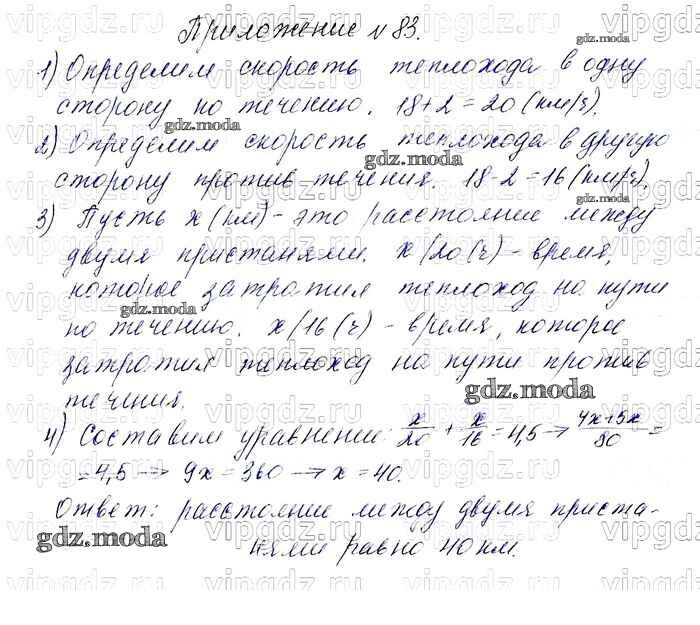 Приложение №83.
1) Определим скорость теплохода в одну
сторону по течению. 18+2=20(км/ч).
2) Определим скорость теплохода в другую
сторону против течения. 18-2=16(км/ч).
3) Пусть x(км)-это расстояние между
двумя пристанями. x/20(ч)-время,
которое затратил теплоход на пути
по течению. x/16(ч)-время, которое
затратил теплоход на пути против
течения.
4) Составим уравнение: x/20 + x/16 = 4,5 → 4x+5x/80 =
=4,5 → 9x=360 → x=40.
Ответ: расстояние между двумя приста-
нями равно 40 км.
gdz.moda
vipgdz.ru